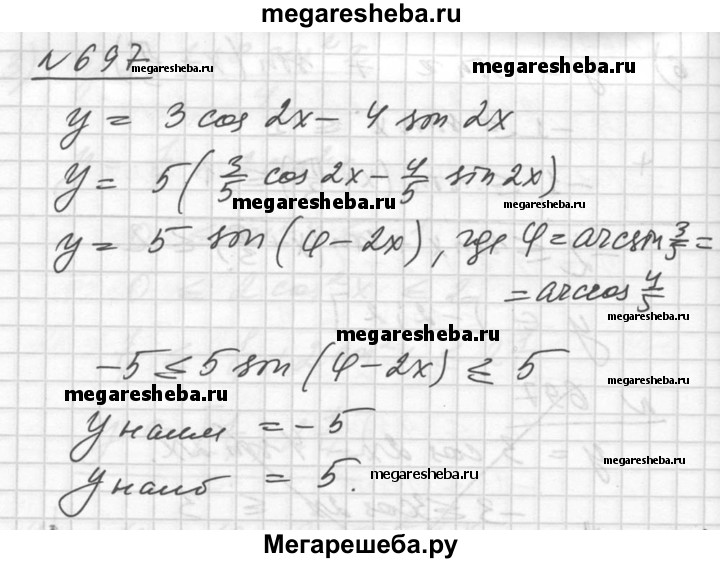 megaresheba.ru
№697 megaresheba.ru megaresheba.ru
y = 3 cos 2x - 4 sin 2x
y = 5 ( 3/5 cos 2x - 4/5 sin 2x )
megaresheba.ru megaresheba.ru
y = 5 sin (φ - 2x), где φ = arcsin 3/5 =
= arccos 4/5
megaresheba.ru megaresheba.ru
-5 ≤ 5 sin (φ - 2x) ≤ 5
megaresheba.ru megaresheba.ru
y наим = -5
y наиб = 5. megaresheba.ru megaresheba.ru
Мегарешеба.ру